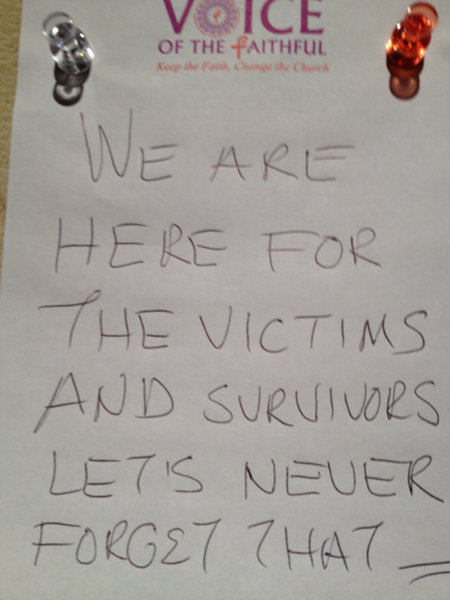 VOICE
OF THE FAITHFUL
Keep the Faith, Change the Church
WE ARE
HERE FOR
THE VICTIMS
AND SURVIVORS
LET'S NEVER
FORGET THAT